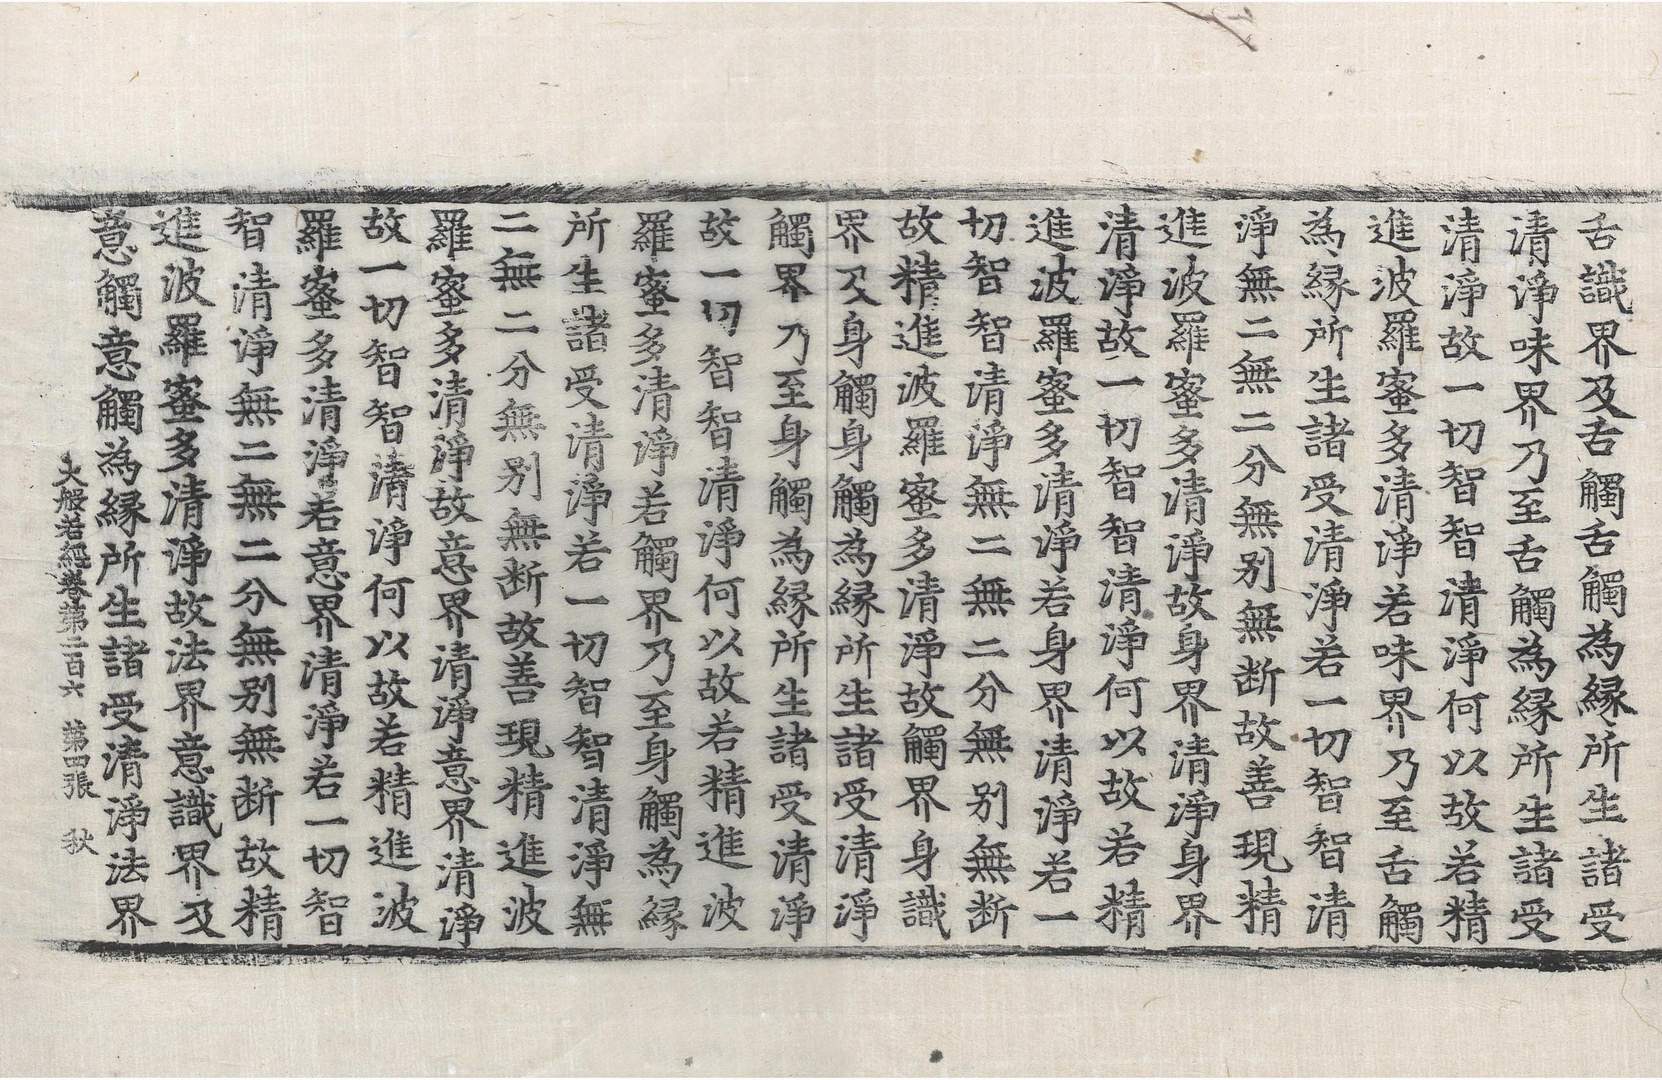 舌識界及舌觸舌觸為縁所生諸受
清淨味界乃至舌觸為縁所生諸受
清淨故一切智智清淨何以故若精
進波羅蜜多清淨若味界乃至舌觸
為縁所生諸受清淨若一切智智清
淨無二無二分無別無断故善現精
進波羅蜜多清淨故身界清淨身界
清淨故一切智智清淨何以故若精
進波羅蜜多清淨若身界清淨若一
切智智清淨無二無二分無別無断
故精進波羅蜜多清淨故觸界身識
界及身觸身觸為縁所生諸受清淨
觸界乃至身觸為縁所生諸受清淨
故一切智智清淨何以故若精進波
羅蜜多清淨若觸界乃至身觸為縁
所生諸受清淨若一切智智清淨無
二無二分無別無断故善現精進波
羅蜜多清淨故意界清淨意界清淨
故一切智智清淨何以故若精進波
羅蜜多清淨若意界清淨若一切智
智清淨無二無二分無別無断故精
進波羅蜜多清淨故法界意識界及
意觸意觸為縁所生諸受清淨法界
大般若經卷第二百六　第四張　秋